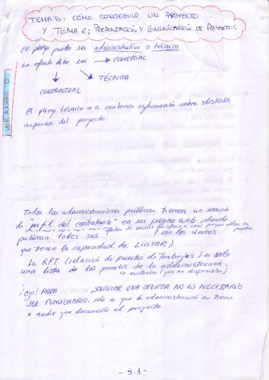 TEMA 5: CÓMO CONSEGUIR UN PROYECTO
Y TEMA 6: PRESENTACIÓN Y COMUNICACIÓN DE PROYECTOS
El pliego puede ser administrativo o técnico
La oferta debe ser → COMERCIAL
TÉCNICA
CONTRACTUAL
El pliego técnico a contener información sobre distintos
aspectos del proyecto.
VER ANEXO
Todas las administraciones públicas tienen un sección
de "perfil del contratante" en su página web, donde
publican todas sus
(son los únicos
que tienen la capacidad de LICITAR).
La RPT (relación de puestos de Trabajo) es solo
una lista de los puestos de la administración.
¡Ojo! PARA SOLICITAR UNA OFERTA NO ES NECESARIO
SER FUNCIONARIO, solo a que la administración no tiene
a nadie que desarrolle el proyecto.
- 5.1 -